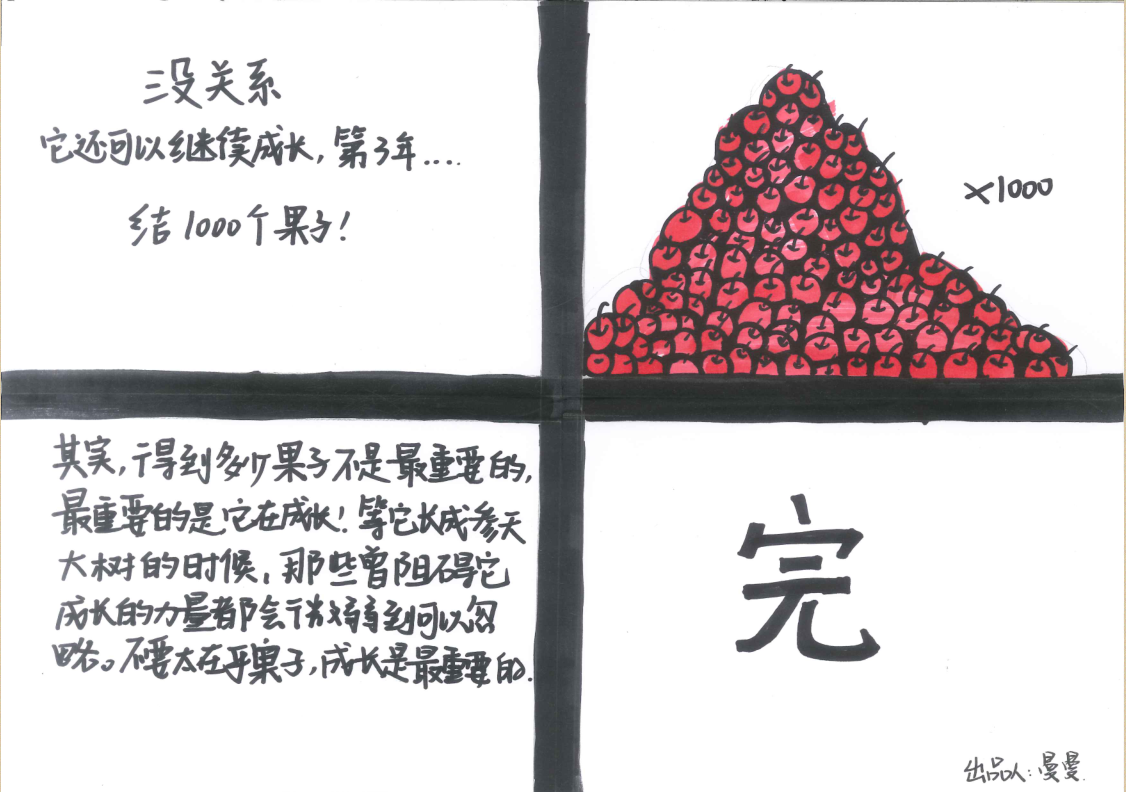 没关系
它还可以继续成长，第3年....
结1000个果子！
×1000
其实，得到多少果子不是最重要的，
最重要的是它在成长！等它长成参天
大树的时候，那些曾阻碍它
成长的力量都会微弱到可以忽
略。不要太在乎果子，成长是最重要的.
完
出品人：曼曼